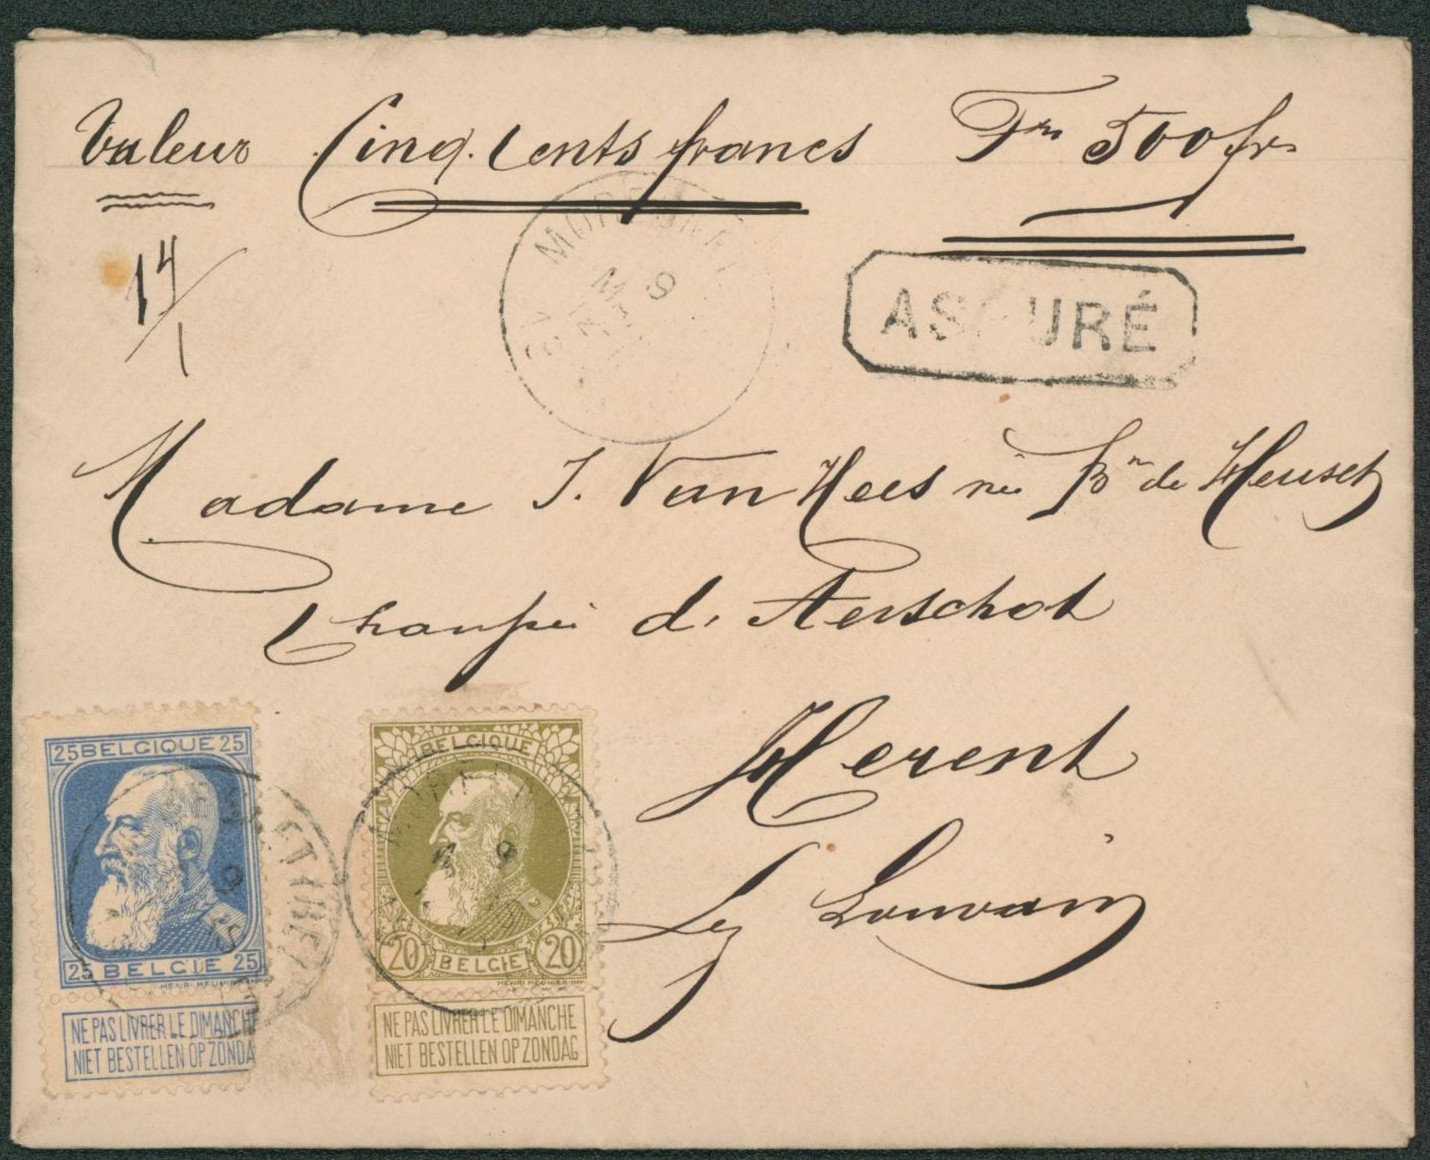 Valeur Cinq. Cents francs Frs 500 frs
14/1
9
ASSURÉ
Madame J. Van Hees née Bn de Heusch
Chaussée d'Aerschot
Herent
Lez Louvain
25 BELGIQUE 25
25 BELGIE 25
HENRI MEUNIER
NE PAS LIVRER LE DIMANCHE
NIET BESTELLEN OP ZONDA
BELGIQUE
20 BELGIE 20
HENRI MEUNIER INV
NE PAS LIVRER LE DIMANCHE
NIET BESTELLEN OP ZONDAG